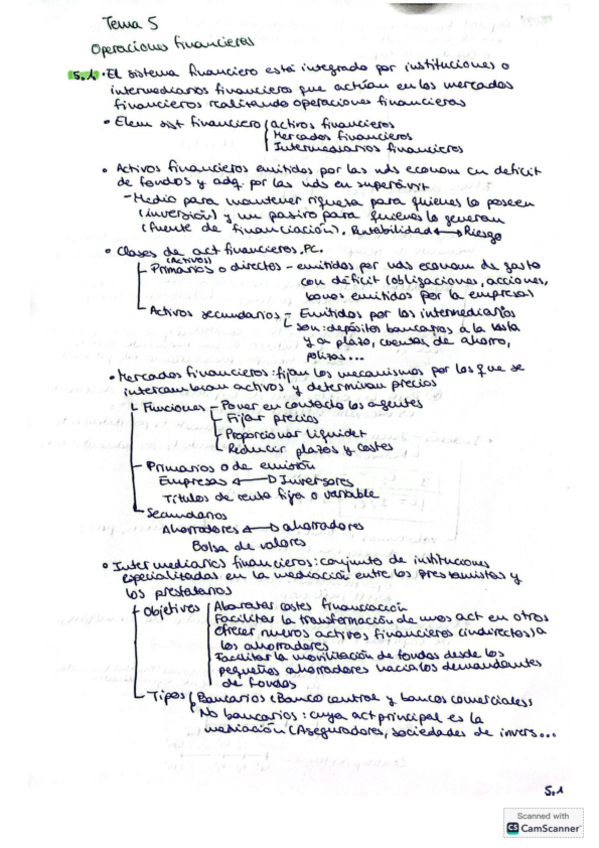 Tema 5
Operaciones financieras
5.1 · El sistema financiero está integrado por instituciones o
intermediarios financieros que actúan en los mercados
financieros realizando operaciones financieras
• Elem sist financiero activos financieros
Mercados financieros
Intermediarios financieros
• Activos financieros emitidos por las uds econom en déficit
de fondos y adq. por las uds en superávit
- Medio para mantener riqueza para quienes lo poseen
(inversión) y un pasivo para quienes lo generan
(fuente de financiación). Rentabilidad ↔ Riesgo
• Clases de act financieros. PC.
(Activos)
Primarios o directos - emitidos por uds econom de gasto
con déficit (obligaciones, acciones,
bonos emitidos por la empresa)
Activos secundarios - Emitidos por los intermediarios
son: depósitos bancarios a la vista
y a plazo, cuentas de ahorro,
polizas...
• Mercados financieros: fijan los mecanismos por los que se
intercambian activos y determinan precios
Funciones - Poner en contacto los agentes
Fijar precios
Proporcionar liquidez
Reducir plazos y costes
Primarios o de emisión
Empresas ↔ Inversores
Títulos de renta fija o variable
Secundarios
Ahorradores ↔ ahorradores
Bolsa de valores
• Intermediarios financieros: conjunto de instituciones
especializadas en la mediación entre los prestamistas y
los prestatarios
Objetivos Abaratar costes financiación
Facilitar la transformación de unos act en otros
Ofrecer nuevos activos financieros (indirectos) a
los ahorradores
Facilitar la movilización de fondos desde los
pequeños ahorradores hacia los demandantes
de fondos
Tipos Bancarios (Banco central y bancos comerciales)
No bancarios: cuya act principal es la
mediación (Aseguradores, sociedades de invers...
5.1
Scanned with
CS CamScanner